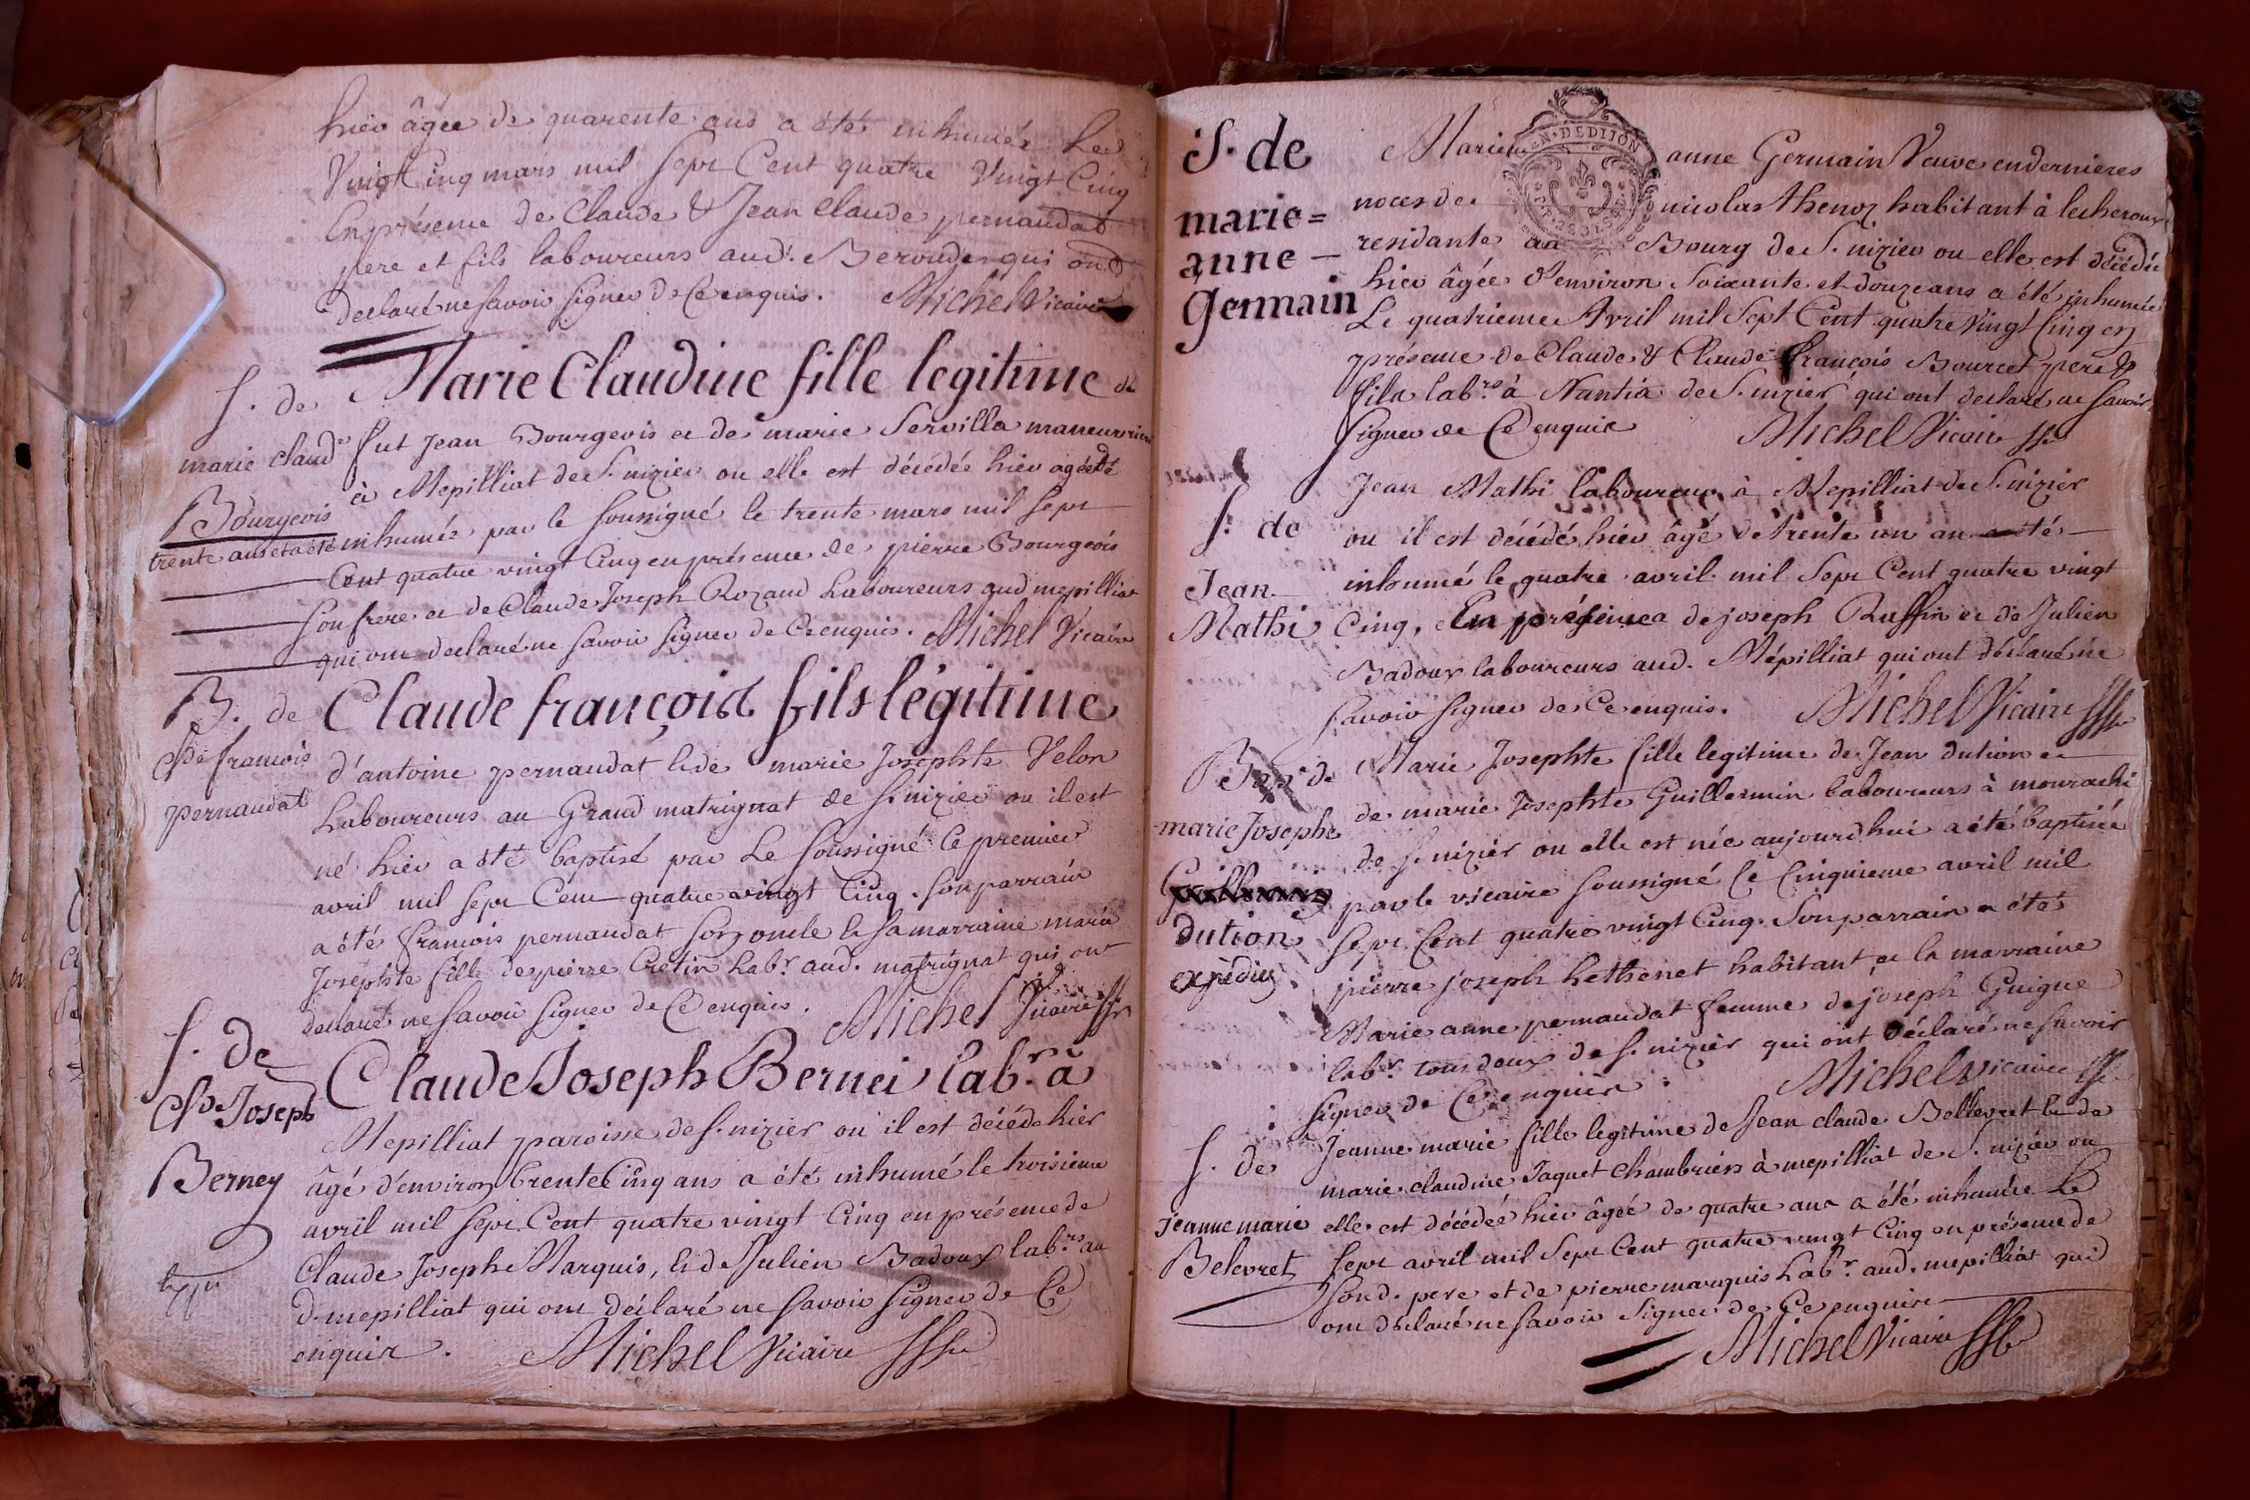 hier âgée de quarente ans a été inhumée Le
Vingt Cinq mars mil Sept Cent quatre Vingt Cinq
En présence de Claude & Jean Claude pernaudat
pere et fils laboureurs aud. Beroude qui ont
declaré ne Savoir Signer de Ce enquis. Michel Vicaire
S. de
marie claude
Bourgeois
Marie Claudine fille legitime de
fut Jean Bourgeois et de marie Servilla maneuvriers
à Mepilliat de S. nizier ou elle est décédée hier agée de
trente ans et a été inhumée par le Soussigné le trente mars mil Sept
Cent quatre vingt Cinq en présence de pierre Bourgeois
Son frere et de Claude Joseph Rozand Laboureurs aud mepilliat
qui ont declaré ne Savoir Signer de Ce enquis. Michel Vicaire
B. de
Cl.de francois
pernaudat
Claude françois fils légitime
d'antoine pernaudat & de marie Josephte Velon
Laboureurs au Grand matrignat de S. nizier ou il est
né hier a été baptisé par Le Soussigné Ce premier
avril mil Sept Cent quatre vingt Cinq. Son parrain
a été francois pernaudat Son oncle & Sa marraine marie
Josephte fille de pierre Cretin Lab.r aud. matrignat qui ont
declaré ne Savoir Signer de Ce enquis. Michel Vicaire
S. de
Cl.de Joseph
Berney
Claude Joseph Bernei lab.r à
Mepilliat paroisse de S. nizier ou il est décédé hier
âgé d'environ trente Cinq ans a été inhumé le troisieme
avril mil Sept Cent quatre vingt Cinq en présence de
Claude Joseph Marquis, & de Julien Badoux lab.rs au
d. mepilliat qui ont déclaré ne Savoir Signer de Ce
enquis. Michel Vicaire
S. de
marie=
anne—
Germain
GEN. DE DIJON
Marie anne Germain Veuve en dernieres
noces de nicolas thenoz habitant à lescheroux
residante au Bourg de S. nizier ou elle est décédée
hier âgée d'environ Soixante et douze ans a été inhumée
Le quatrieme Avril mil Sept Cent quatre Vingt Cinq en
présence de Claude & Claude françois Bourcet pere &
fils lab.rs à Nantia de S. nizier qui ont declaré ne Savoir
Signer de Ce enquis Michel Vicaire
S. de
Jean
Mathi
Jean Mathi laboureur à Mepilliat de S. nizier
ou il est décédé hier âgé de trente un an a été
inhumé le quatre avril mil Sept Cent quatre vingt
Cinq, En présence de joseph Ruffin et de Julien
Badoux laboureurs aud. Mépilliat qui ont déclaré ne
Savoir Signer de Ce enquis. Michel Vicaire
Bap.e de
marie Josephe
dution
expédiez
Marie Josephte fille legitime de Jean dution et
de marie Josephte Guillermin laboureurs à mourachi
de S. nizier ou elle est née aujourd'hui a été baptisée
par le vicaire Soussigné Ce Cinquieme avril mil
Sept Cent quatre vingt Cinq. Son parrain a été
pierre joseph hethenet habitant et la marraine
Marie anne pernaudat femme de joseph Guigue
lab.r tous deux de S. nizier qui ont déclaré ne Savoir
Signer de Ce enquis. Michel Vicaire
S. de
Jeanne marie
Belevret
Jeanne marie fille legitime de Jean claude Bellevret & de
marie claudine Jaquet chambriers à mepilliat de S. nizier ou
elle est décédée hier âgée de quatre ans a été inhumée Le
Sept avril mil Sept Cent quatre vingt Cinq en présence de
Sond. pere et de pierre marquis Lab.r aud. mepilliat qui
ont déclaré ne Savoir Signer de Ce enquis
Michel Vicaire